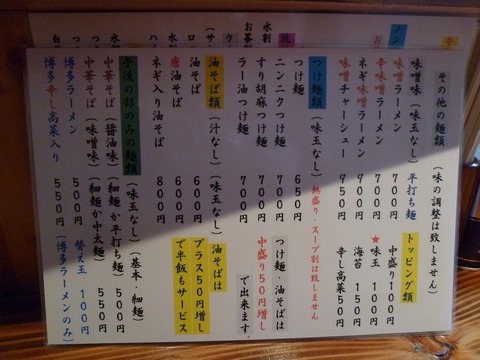 その他の麺類 (味の調整は致しません)
味噌味 (味玉なし) 平打ち麺
味噌ラーメン 700円
辛味噌ラーメン 700円
ネギ味噌ラーメン 900円
味噌チャーシュー 950円
トッピング類
中盛り 100円
★味玉 100円
海苔 150円
辛し高菜 50円
つけ麺類 (味玉なし) 熱盛り・スープ割は致しません
つけ麺 650円
ニンニクつけ麺 700円
すり胡麻つけ麺 700円
ラー油つけ麺 700円
つけ麺、油そばは
中盛り50円増し
で出来ます
油そば類 (汁なし) (味玉なし)
油そば 600円
唐油そば 600円
ネギ入り油そば 800円
油そばは
プラス50円増し
で半飯もサービス
午後の部のみの麺類 (味玉なし) (基本・細麺)
中華そば (醤油味) (細麺か平打ち麺) 500円
中華そば (味噌味) (細麺か中太麺) 550円
博多ラーメン 500円 替え玉 100円
博多辛し高菜入り 550円 (博多ラーメンのみ)